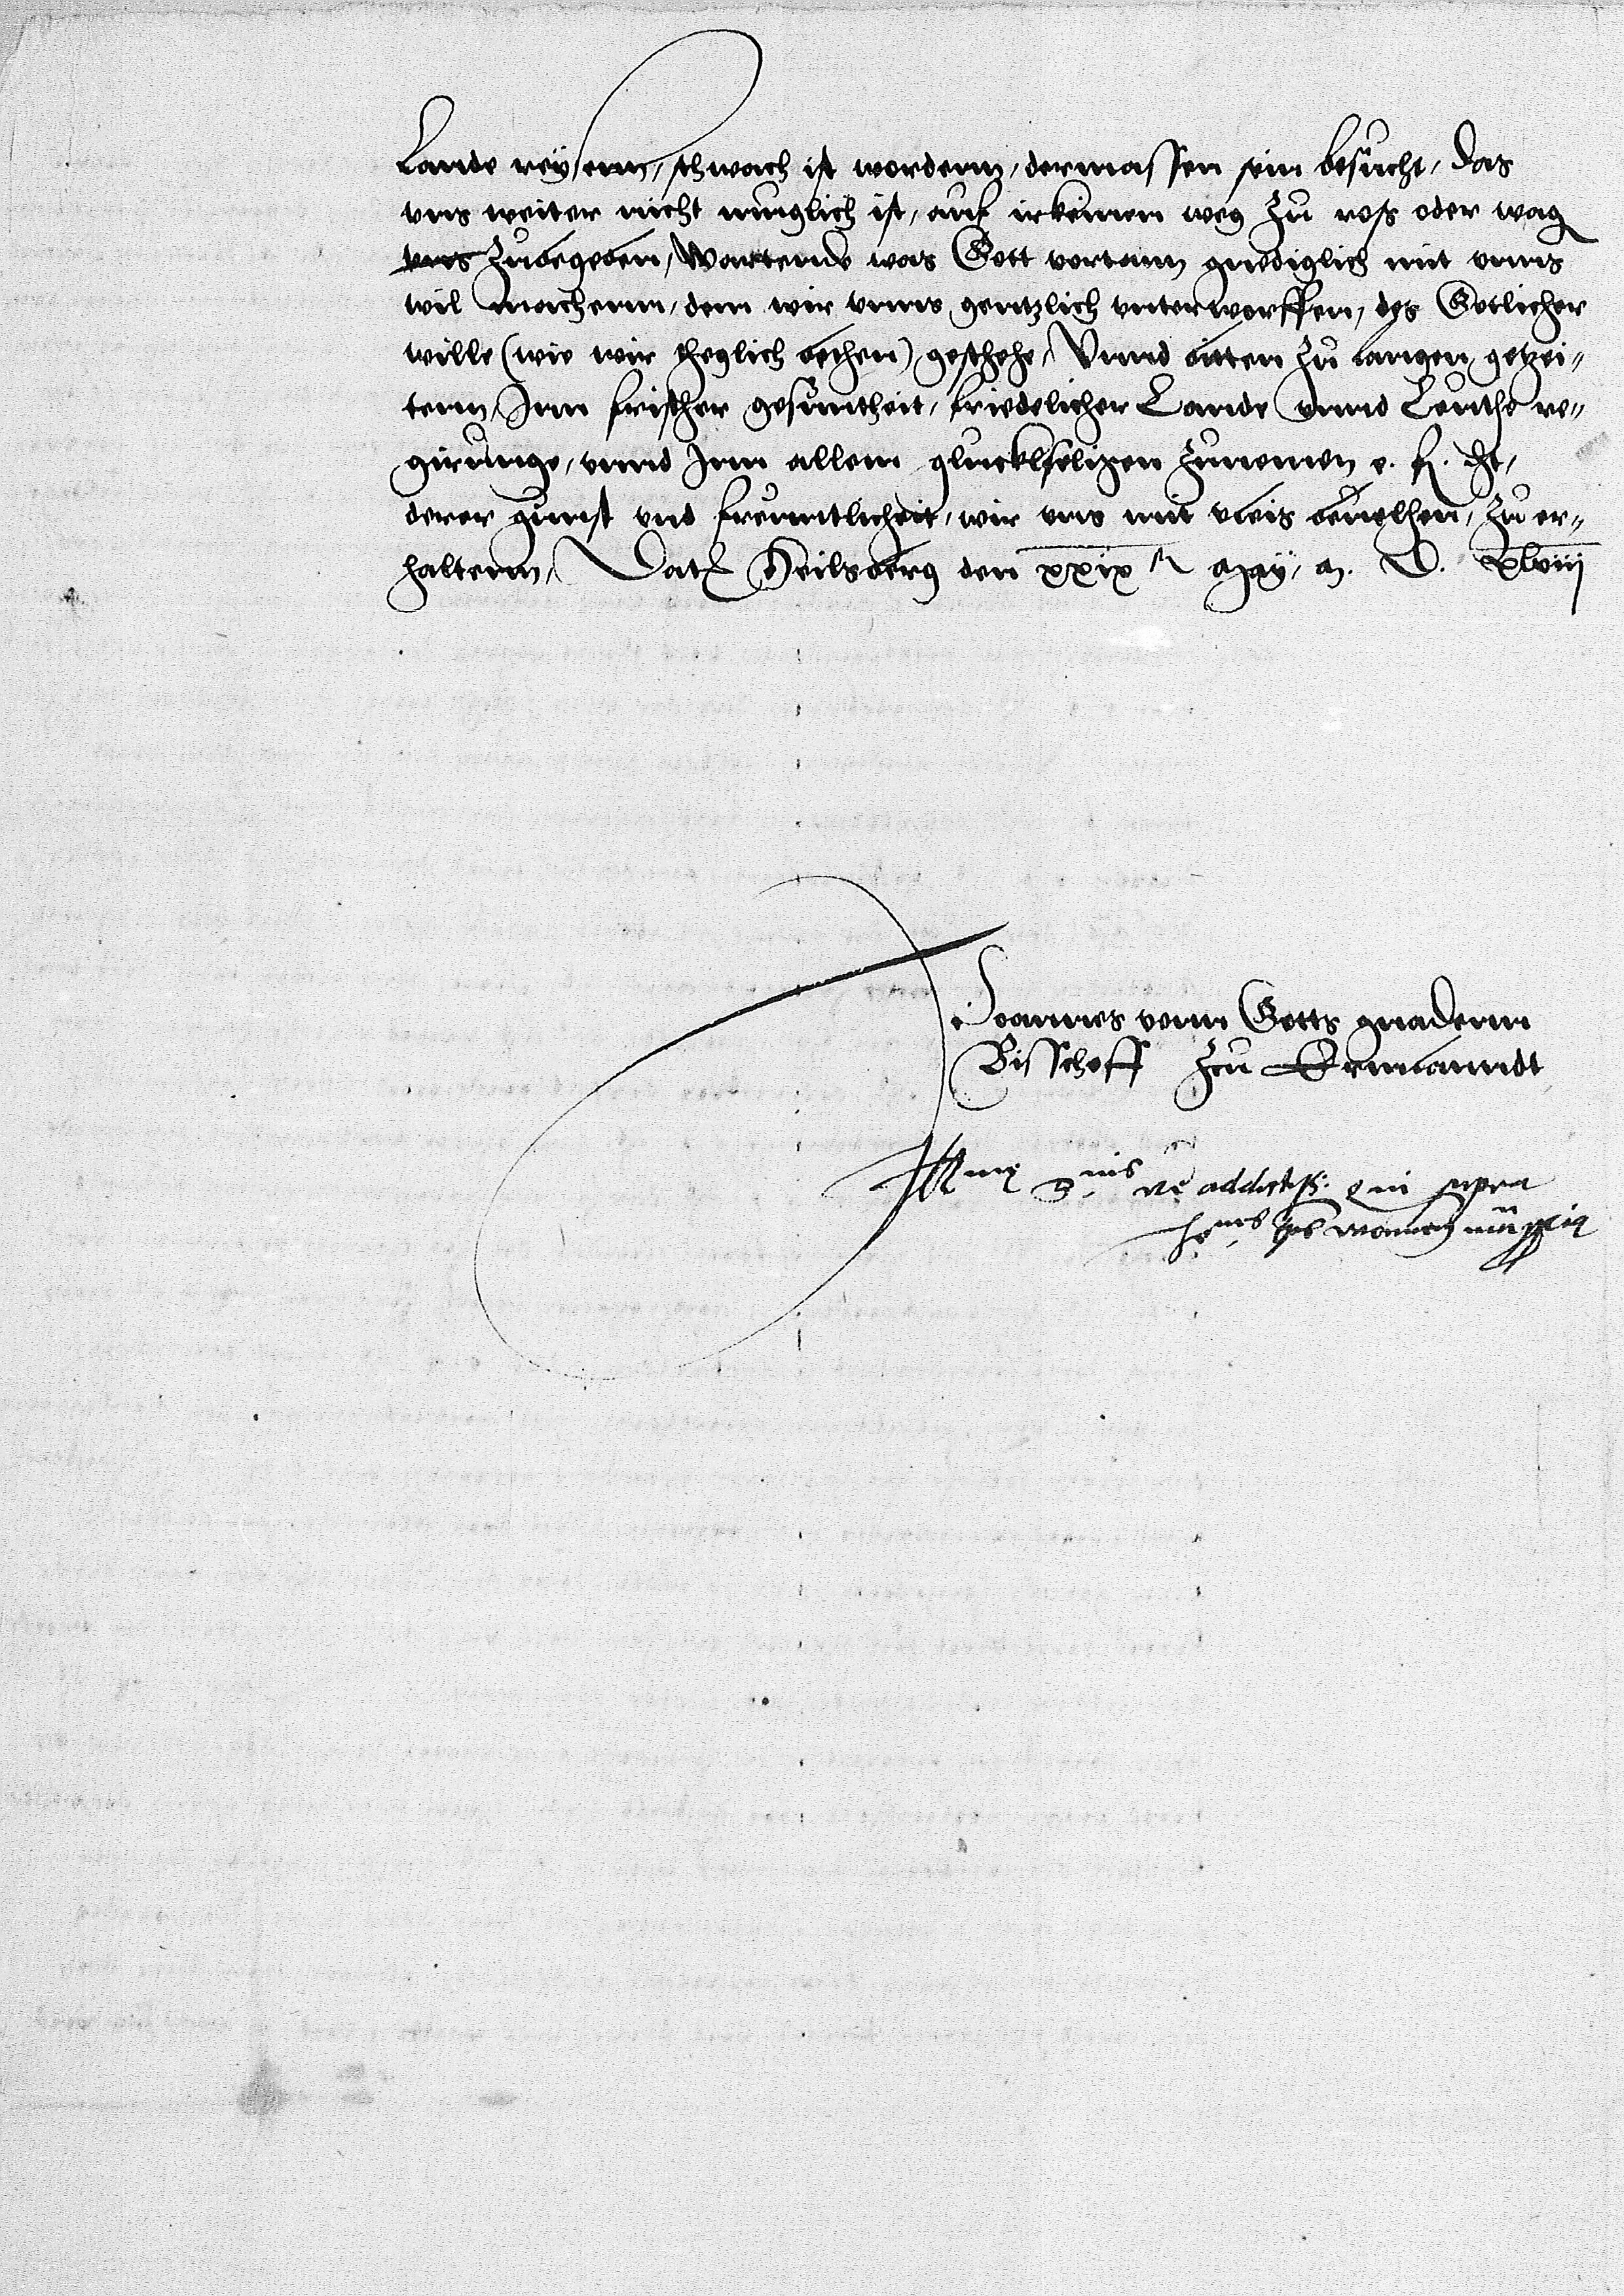 Lande reysenn, schwach ist wordenn, dermassen sein besucht, Das
vns weiter nicht muglich ist, auf irkeinen weg zu ross oder wag
vns zubegeben, Wartende was Gott vortann gnediglich mit vnns
wil machenn, dem wir vnns gentzlich vnterworffen, des Gotlicher
wille (wie wir theglich bethen) geschehe, Vnnd bitten zu langen getzei-
tenn, Inn frischer gesuntheit, friedelicher Lande vnnd Leuthe re-
girunge, vnnd Inn allem gluckseligen zunemen e. f. Dt,
derer gunst vnd freuntlicheit, wir vns mit vleis beuelhen, zu er-
haltenn, Dat Heilsberg den xxix May, M. D. xlviij
Joannes vonn Gotts gnadenn
Bisschoff zcu Ermlanndt
addictiss: qui supra